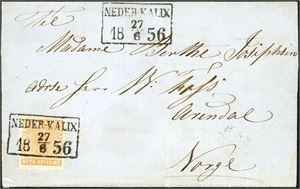 NEDER-KALIX
27
6
18 56
Til
Madame Berthe Josephsen
adrse Herr W.
Arendal
Norge
NEDER-KALIX
27
6
18 56